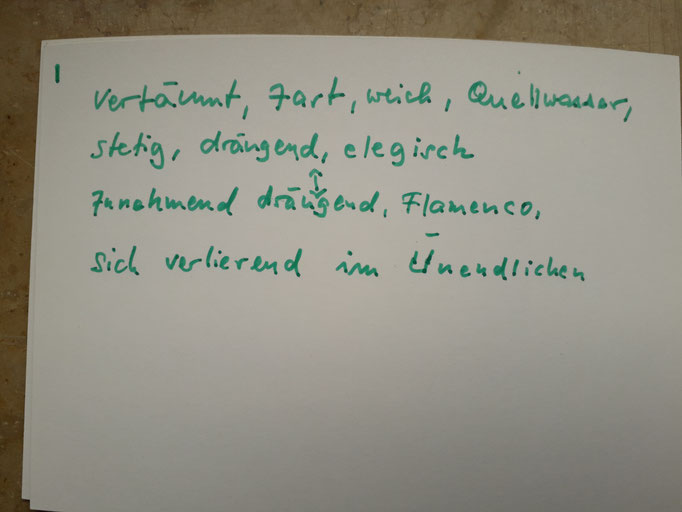 1
vertäumt, zart, weich, Quellwasser,
stetig, drängend, elegisch
zunehmend drängend, Flamenco,
sich verlierend im Unendlichen